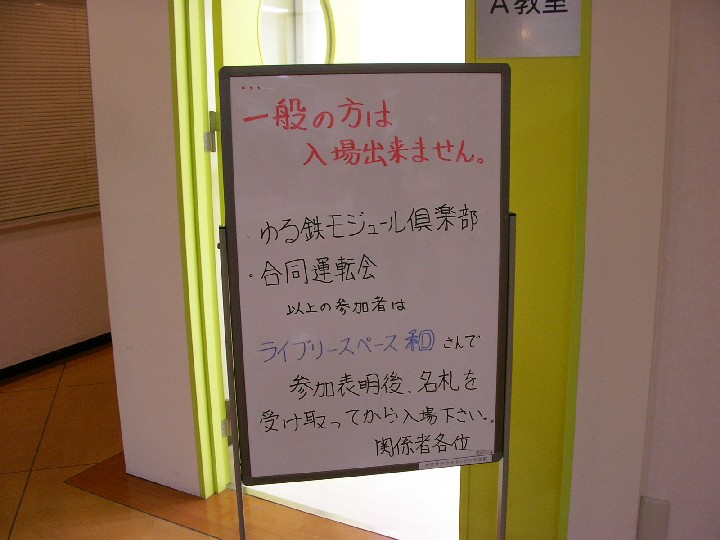 A教室
一般の方は
入場出来ません。
・ゆる鉄モジュール倶楽部
・合同運転会
以上の参加者は
ライブリースペース和さんで
参加表明後、名札を
受け取ってから入場下さい。
関係者各位